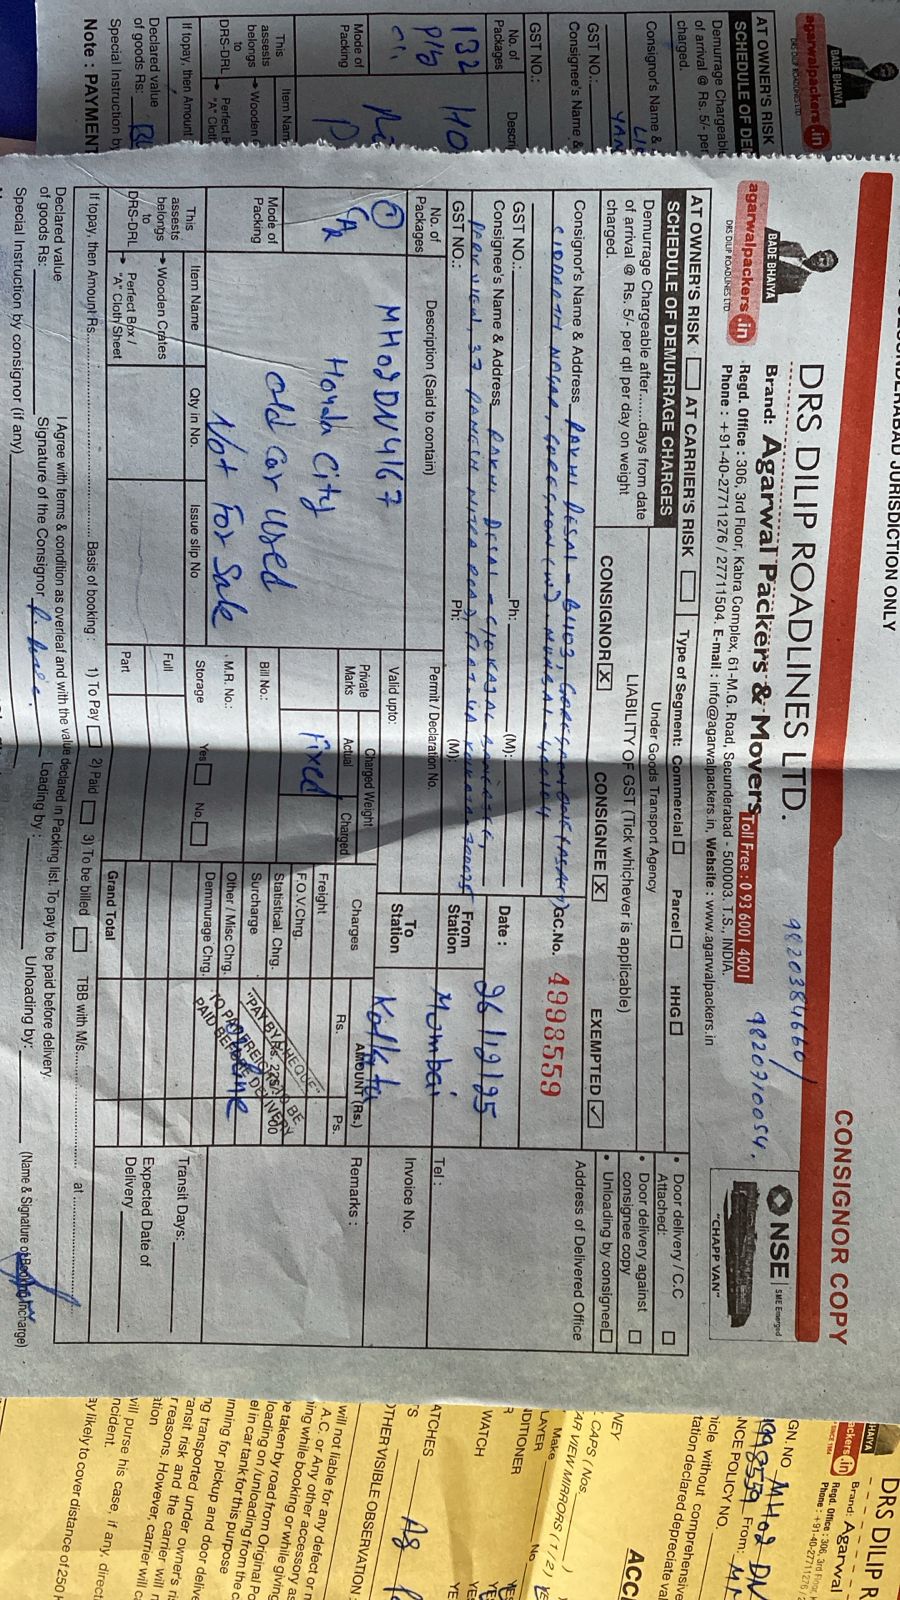 SECUNDERABAD JURISDICTION ONLY
CONSIGNOR COPY
DRS DILIP ROADLINES LTD.
9820384660/
9820710054.
BADE BHAIYA
agarwalpackers.in
DRS DILIP ROADLINES LTD
Brand: Agarwal Packers & Movers
Toll Free : 0 93 6001 4001
Regd. Office : 306, 3rd Floor, Kabra Complex, 61-M.G. Road, Secunderabad - 500003. T.S., INDIA.
Phone : +91-40-27711276 / 27711504. E-mail : info@agarwalpackers.in, Website : www.agarwalpackers.in
NSE
SME Emerged
"CHAPP VAN"
AT OWNER'S RISK AT CARRIER'S RISK
Type of Segment: Commercial Parcel HHG
SCHEDULE OF DEMURRAGE CHARGES
Under Goods Transport Agency
Demurrage Chargeable after.......days from date
of arrival @ Rs. 5/- per qtl per day on weight
charged.
LIABILITY OF GST (Tick whichever is applicable)
CONSIGNOR X CONSIGNEE X EXEMPTED ✓
• Door delivery / C.C Attached:
• Door delivery against consignee copy
• Unloading by consignee
Consignor's Name & Address RAKHI DESAI - B/103,
GST NO.: Ph: (M):
GC.No. 4998559
Address of Delivered Office
Consignee's Name & Address RAKHI DESAI - C/O KAJAL
GST NO.: Ph: (M):
Date : 26/12/25
From Station Mumbai
Tel :
To Station Kolkata
Invoice No.
No. of Packages
Description (Said to contain)
Permit / Declaration No.
Valid upto:
① CAR
MH02DN4167
Honda City
Old Car Used
Not For Sale
Private Marks
Charged Weight
Actual Charged
Fixed
Charges AMOUNT (Rs.)
Rs. Ps.
Remarks :
Freight
F.O.V.Chrg.
Statistical. Chrg.
Surcharge
Other / Misc Chrg.
Demmurage Chrg.
Grand Total
"PAY BY CHEQUE"
Mode of Packing
Bill No.:
M.R. No.:
This assests belongs to DRS-DRL
Item Name Qty in No. Issue slip No
Wooden Crates
Perfect Box / "A" Cloth Sheet
Storage Yes No.
Full
Part
Transit Days:
Expected Date of Delivery
If topay, then Amount Rs. Basis of booking : 1) To Pay 2) Paid 3) To be billed TBB with M/s. at
Declared value of goods Rs:
I Agree with terms & condition as overleaf and with the value declared in Packing list. To pay to be paid before delivery.
Signature of the Consignor Loading by : Unloading by: (Name & Signature of Booking Incharge)
Special Instruction by consignor (if any)
BADE BHAIYA
agarwalpackers.in
DRS DILIP ROADLINES LTD
AT OWNER'S RISK
SCHEDULE OF DE
Demurrage Chargeable
of arrival @ Rs. 5/- per
charged.
Consignor's Name &
GST NO.:
Consignee's Name &
GST NO.:
No. of Packages Descri
132 HO
Mode of Packing
This assests belongs to DRS-DRL
Item Nam
Wooden
Perfect
"A" Cloth
If topay, then Amount
Declared value of goods Rs:
Special Instruction by
Note : PAYMENT
DRS DILIP R
Brand: Agarwal
Regd. Office : 306, 3rd Floor,
Phone : +91-40-27711276 /
GN NO MH02 DN
4998559 From:
NCE POLICY NO,
icle without comprehensive
tation declared depreciate val
ACC
NEY
CAPS (Nos.
AR VIEW MIRRORS (1/2)
LAYER Make
NDITIONER No
WATCH
ATCHES
OTHER VISIBLE OBSERVATION
will not liable for any defect or
A.C. or Any other accessory as
ing while booking or while giving
be taken by road from Original Po
loading on /unloading from the c
el in car tank for this purpose
nning for pickup and door delive
ng transported under owner's ri
ransit risk and the carrier will n
r reasons. However, carrier will c
vill purse his case, if any, direct
ncident.
ay likely to cover distance of 250